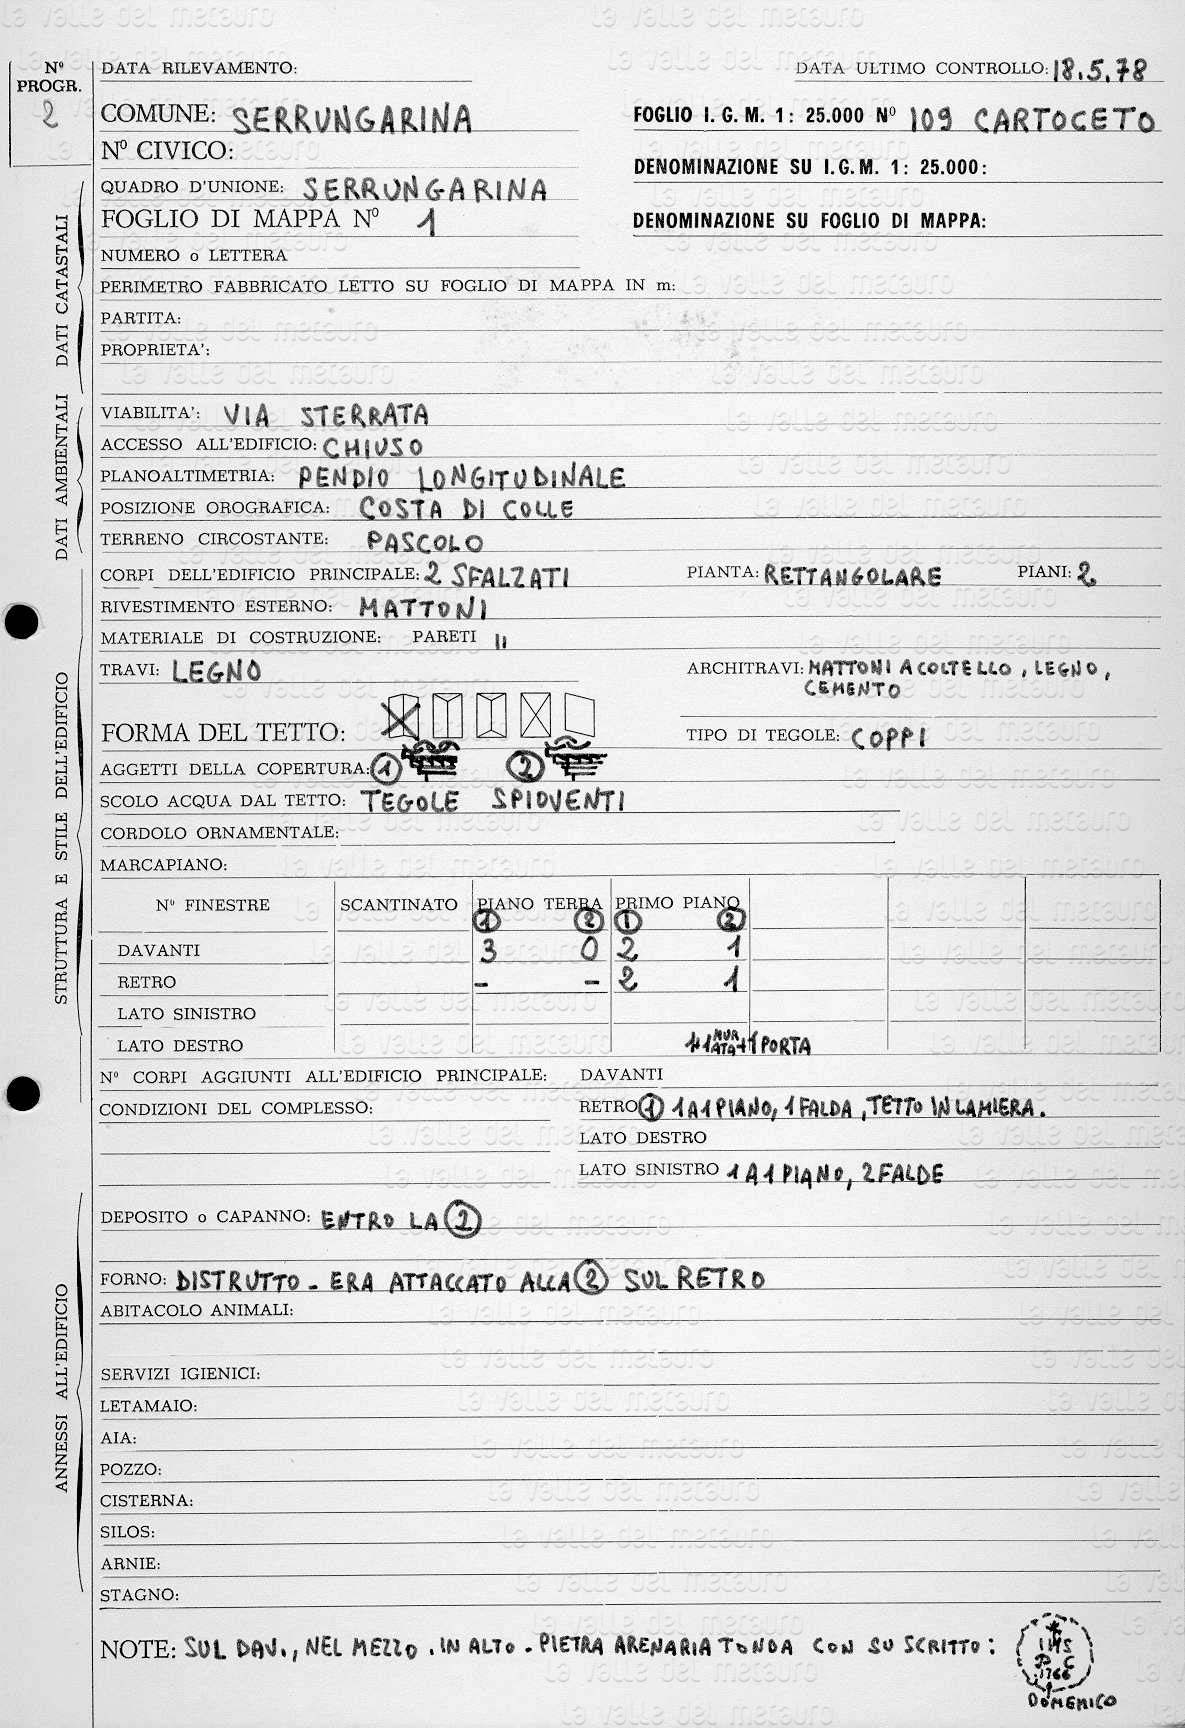 Nº DATA RILEVAMENTO: DATA ULTIMO CONTROLLO: 18.5.78
PROGR.
2
COMUNE: SERRUNGARINA FOGLIO I. G. M. 1: 25.000 Nº 109 CARTOCETO
Nº CIVICO: DENOMINAZIONE SU I. G. M. 1: 25.000:
QUADRO D'UNIONE: SERRUNGARINA
FOGLIO DI MAPPA Nº 1 DENOMINAZIONE SU FOGLIO DI MAPPA:
DATI CATASTALI
NUMERO o LETTERA
PERIMETRO FABBRICATO LETTO SU FOGLIO DI MAPPA IN m:
PARTITA:
PROPRIETA':
DATI AMBIENTALI
VIABILITA': VIA STERRATA
ACCESSO ALL'EDIFICIO: CHIUSO
PLANOALTIMETRIA: PENDIO LONGITUDINALE
POSIZIONE OROGRAFICA: COSTA DI COLLE
TERRENO CIRCOSTANTE: PASCOLO
STRUTTURA E STILE DELL'EDIFICIO
CORPI DELL'EDIFICIO PRINCIPALE: 2 SFALZATI PIANTA: RETTANGOLARE PIANI: 2
RIVESTIMENTO ESTERNO: MATTONI
MATERIALE DI COSTRUZIONE: PARETI "
TRAVI: LEGNO ARCHITRAVI: MATTONI A COLTELLO, LEGNO,
CEMENTO
FORMA DEL TETTO: TIPO DI TEGOLE: COPPI
AGGETTI DELLA COPERTURA: 1 2
SCOLO ACQUA DAL TETTO: TEGOLE SPIOVENTI
CORDOLO ORNAMENTALE:
MARCAPIANO:
Nº FINESTRE SCANTINATO PIANO TERRA PRIMO PIANO
1 2 1 2
DAVANTI 3 0 2 1
RETRO - - 2 1
LATO SINISTRO
LATO DESTRO 1+1 MURATA+1 PORTA
Nº CORPI AGGIUNTI ALL'EDIFICIO PRINCIPALE: DAVANTI
CONDIZIONI DEL COMPLESSO: RETRO 1 1 A 1 PIANO, 1 FALDA, TETTO IN LAMIERA.
LATO DESTRO
LATO SINISTRO 1 A 1 PIANO, 2 FALDE
ANNESSI ALL'EDIFICIO
DEPOSITO o CAPANNO: ENTRO LA 2
FORNO: DISTRUTTO - ERA ATTACCATO ALLA 2 SUL RETRO
ABITACOLO ANIMALI:
SERVIZI IGIENICI:
LETAMAIO:
AIA:
POZZO:
CISTERNA:
SILOS:
ARNIE:
STAGNO:
NOTE: SUL DAV., NEL MEZZO. IN ALTO - PIETRA ARENARIA TONDA CON SU SCRITTO:
IHS
D C
1766
DOMENICO
la valle del metauro